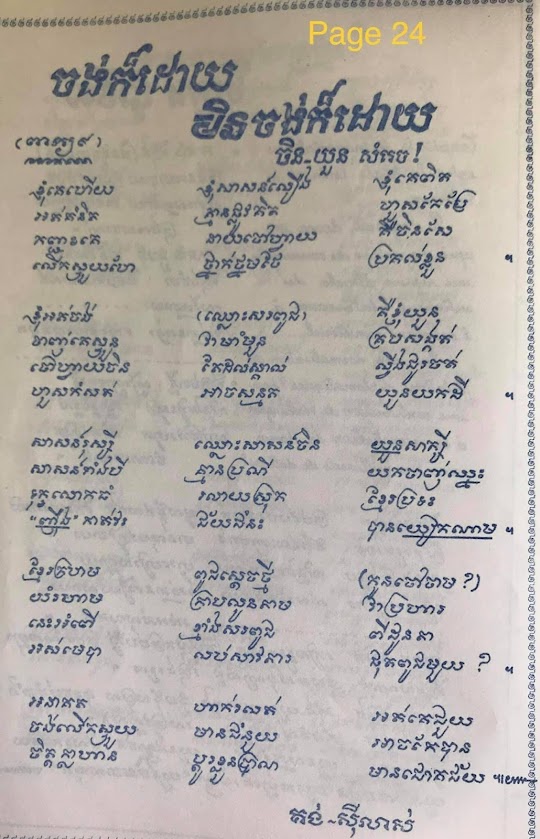 Page 24
ចង់ក៏ដោយ
មិនចង់ក៏ដោយ
(ពាក្យ៩)
ចិន-យួន សំរេច!
ខ្ញុំគេហើយ ខ្ញុំសាសន៍លឿង ខ្ញុំគេពិត
អត់គំនិត គ្មានផ្លូវគិត ហួសកែប្រែ
កញ្ជះគេ នាយចៅហ្វាយ គឺចិនសែ
លើកស្ួយហែ ថ្នាក់ថ្នមថែ ប្រគល់ខ្លួន
ខ្ញុំអត់ចង់ (ឈ្លោះសរពូជ) គឺខ្ញុំយួន
ចាញ់គេស្ងួន វាមាំមួន គ្របសង្កត់
ចៅហ្វាយចិន តែដល់ស្គាល់ ស្វឹងជូរចត់
ហួសកំសត់ អាចសន្មត យួនយកដី
សាសន៍រុស្ស៊ី ឈ្លោះសាសន៍ចិន យួនសាក្សី
សាសន៍ទាំងបី គ្មានប្រណី យកចាញ់ឈ្នះ
រលាយស្រុក ខ្មែរប្រទះ
ជ័យជំនះ បានយៀកណាម
ខ្មែរក្រហម ពូជស្ដេចថ្មី (កូនចៅចាម ?)
យំរហាម ក្រាបលូនតាម វាប្រហារ
នេះអំពើ ខ្មាំងសរពូជ ពីដូនតា
អស់មេបា លប់សាវតារ ផុតពូជមួយ ?
អនាគត ហាក់រលត់ អត់គេជួយ
ចង់លើកស្ួយ មានជំនួយ អាចកែបាន
ចិត្តក្លាហាន ប្ដូរខ្លួនប្រាណ មានជោគជ័យ
គង់-ស៊ីលាស់